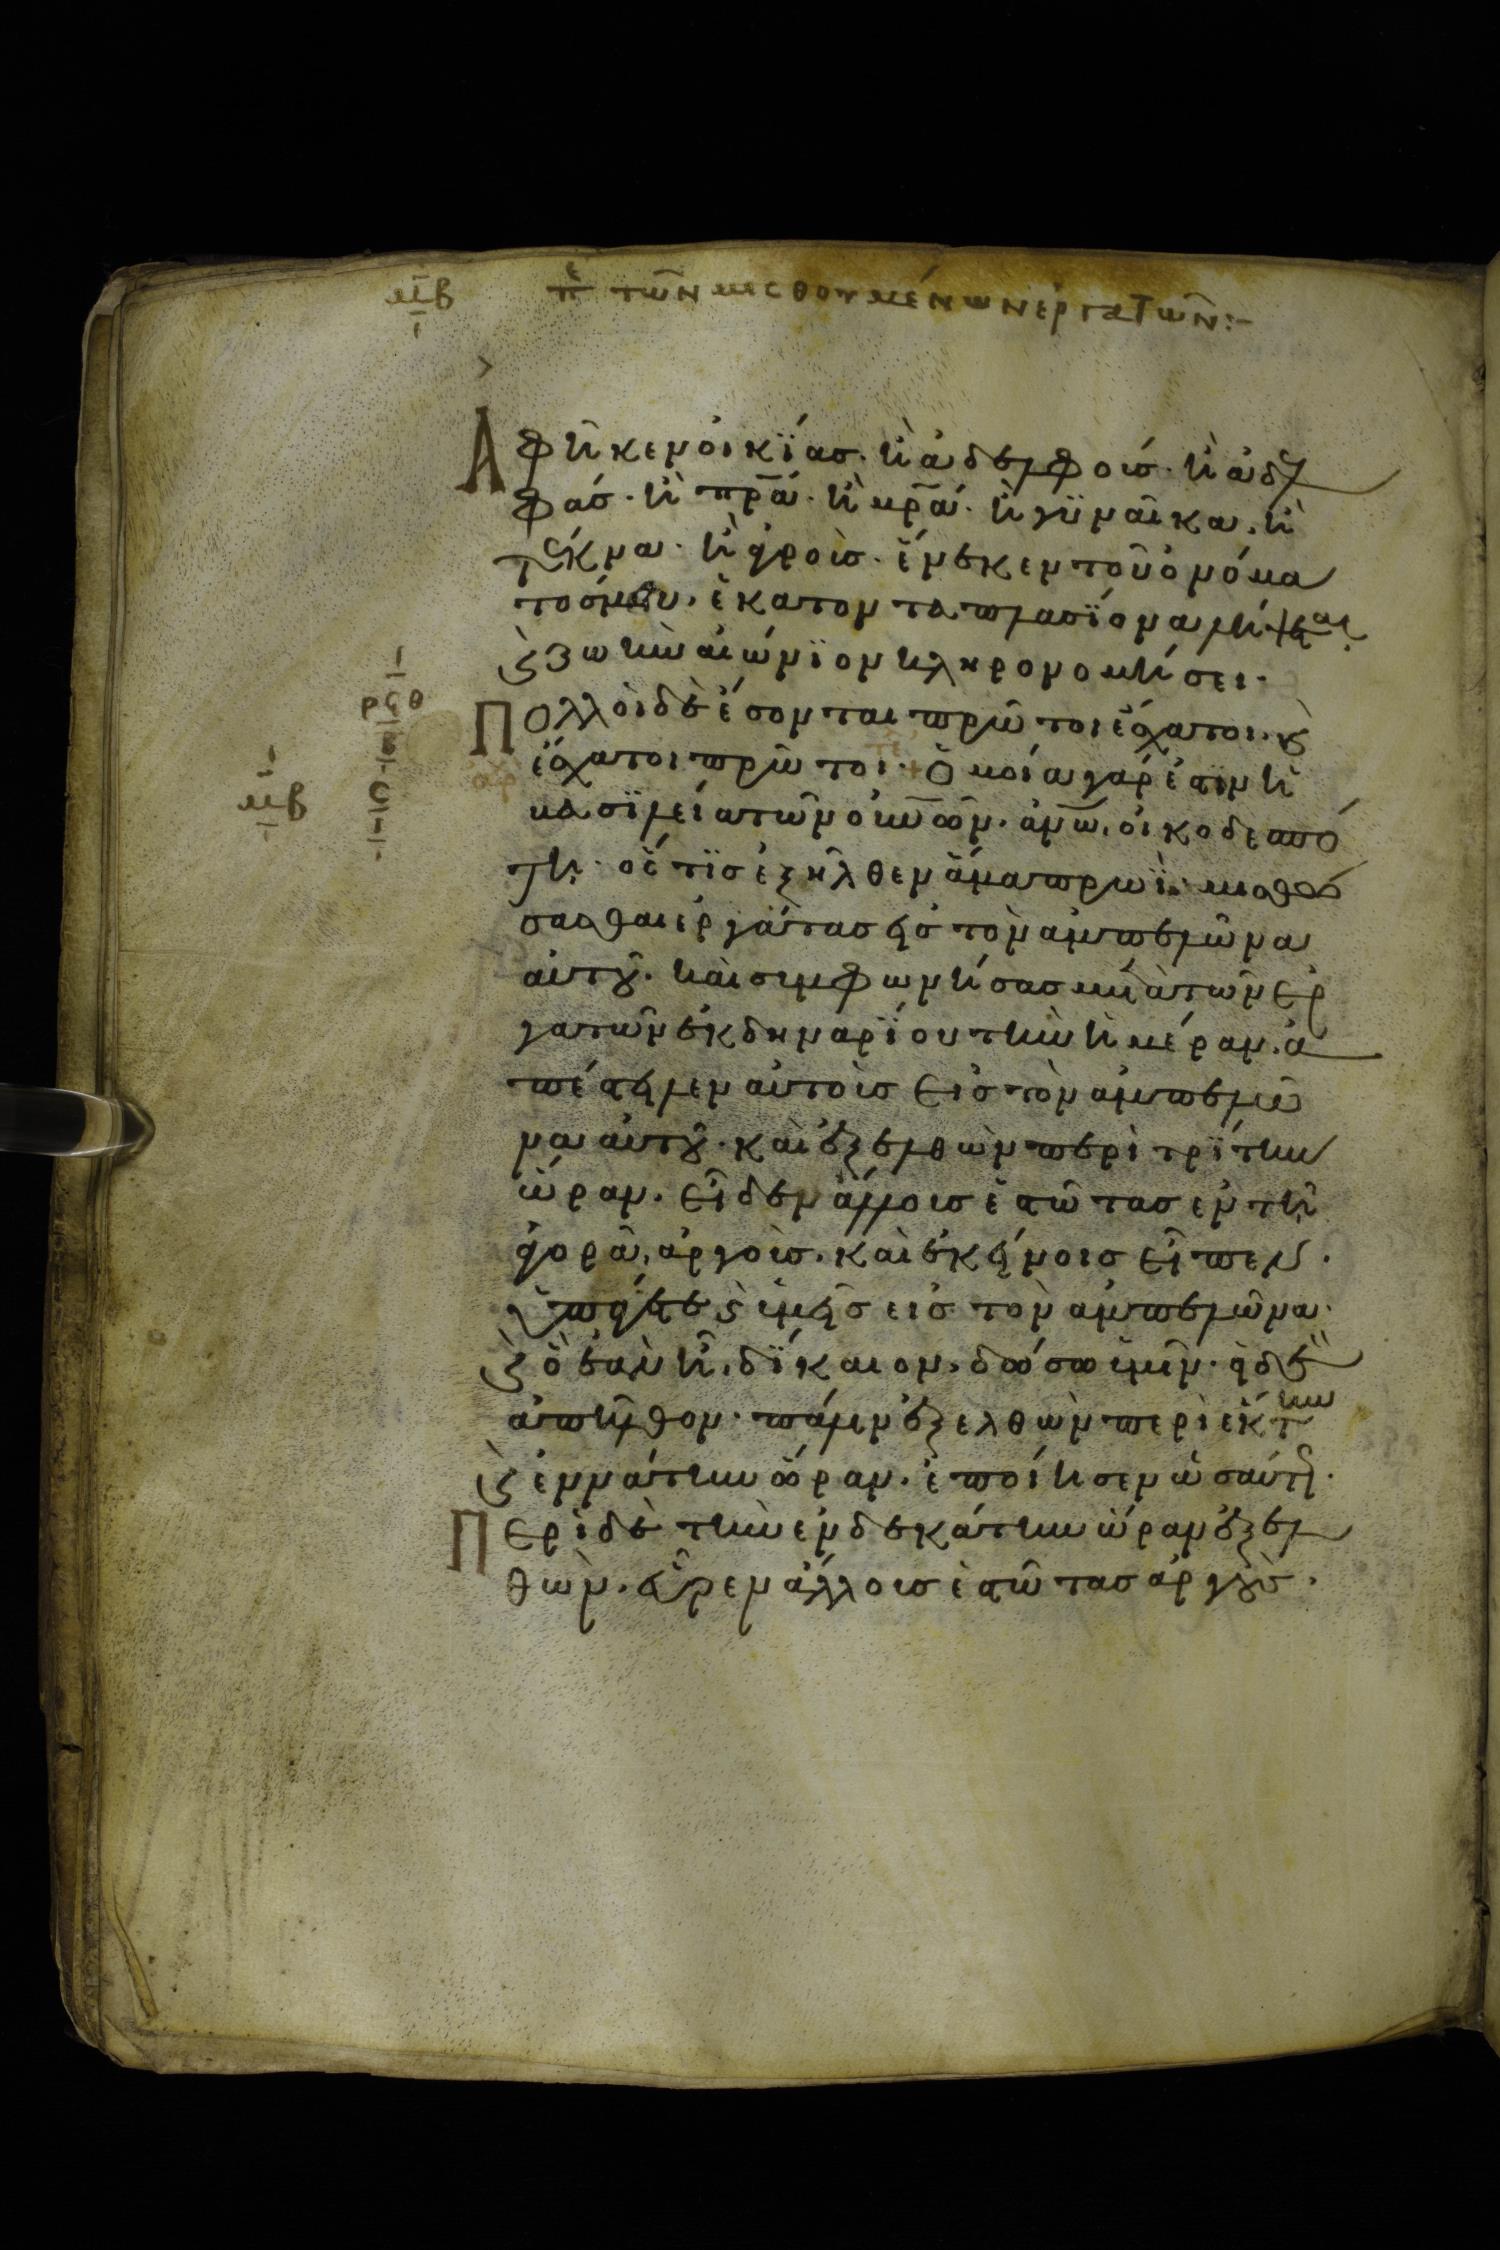 μβ πε τῶν μισθουμένων ἐργατῶν:-
Ἀφῆκεν οἰκΐασ· ἢ ἀδελφοὺσ· ἢ ἀδελ
φάσ· ἢ πρ̅α· ἢ μρ̅α· ἢ γϋναῖκα, ἢ
τέκνα· ἢ ἀγροὺσ· ἕνεκεν τοῦ ὀνόμα
τοσ μου, ἑκατονταπλασΐονα λήψεται,
καὶ ζωὴν αἰώνϊον κληρονομήσει·
ρϞθ
Πολλοὶ δὲ ἔσονται πρῶτοι ἔσχατοι· καὶ
ἔσχατοι πρῶτοι· + Ὁμοία γάρ ἐστϊν ἡ
μβ
βασϊλεία τῶν οὐνῶν· ἀνω, οἰκοδεσπό
τη· ὅστϊσ ἐξῆλθεν ἅμα πρωῒ· μισθώ
σασθαι ἐργάτασ εἰσ τὸν ἀμπελῶνα
αὐτοῦ· καὶ συμφωνήσασ μετὰ τῶν ἐρ
γατῶν ἐκ δηναρΐου τὴν ἡμέραν· ἀ
πέστειλεν αὐτοὺσ εἰσ τὸν ἀμπελῶ
να αὐτοῦ· καὶ ἐξελθὼν περὶ τρΐτην
ὥραν· εἶδεν ἄλλουσ ἑστῶτασ ἐν τῇ
ἀγορᾷ, ἀργοὺσ· καὶ ἐκείνοισ εἶπεν·
ὑπάγετε καὶ ὑμεῖσ εἰσ τὸν ἀμπελῶνα·
καὶ ὃ ἐὰν ἦ, δΐκαιον, δώσω ὑμῖν· οἱ δὲ
ἀπῆλθον· πάλιν ἐξελθὼν περὶ ἕκτην
καὶ ἐννάτην ὥραν· ἐποίησεν ὡσαύτωσ·
Περὶ δὲ τὴν ἑνδεκάτην ὥραν ἐξελ
θὼν· εὗρεν ἄλλουσ ἑστῶτασ ἀργοὺσ·